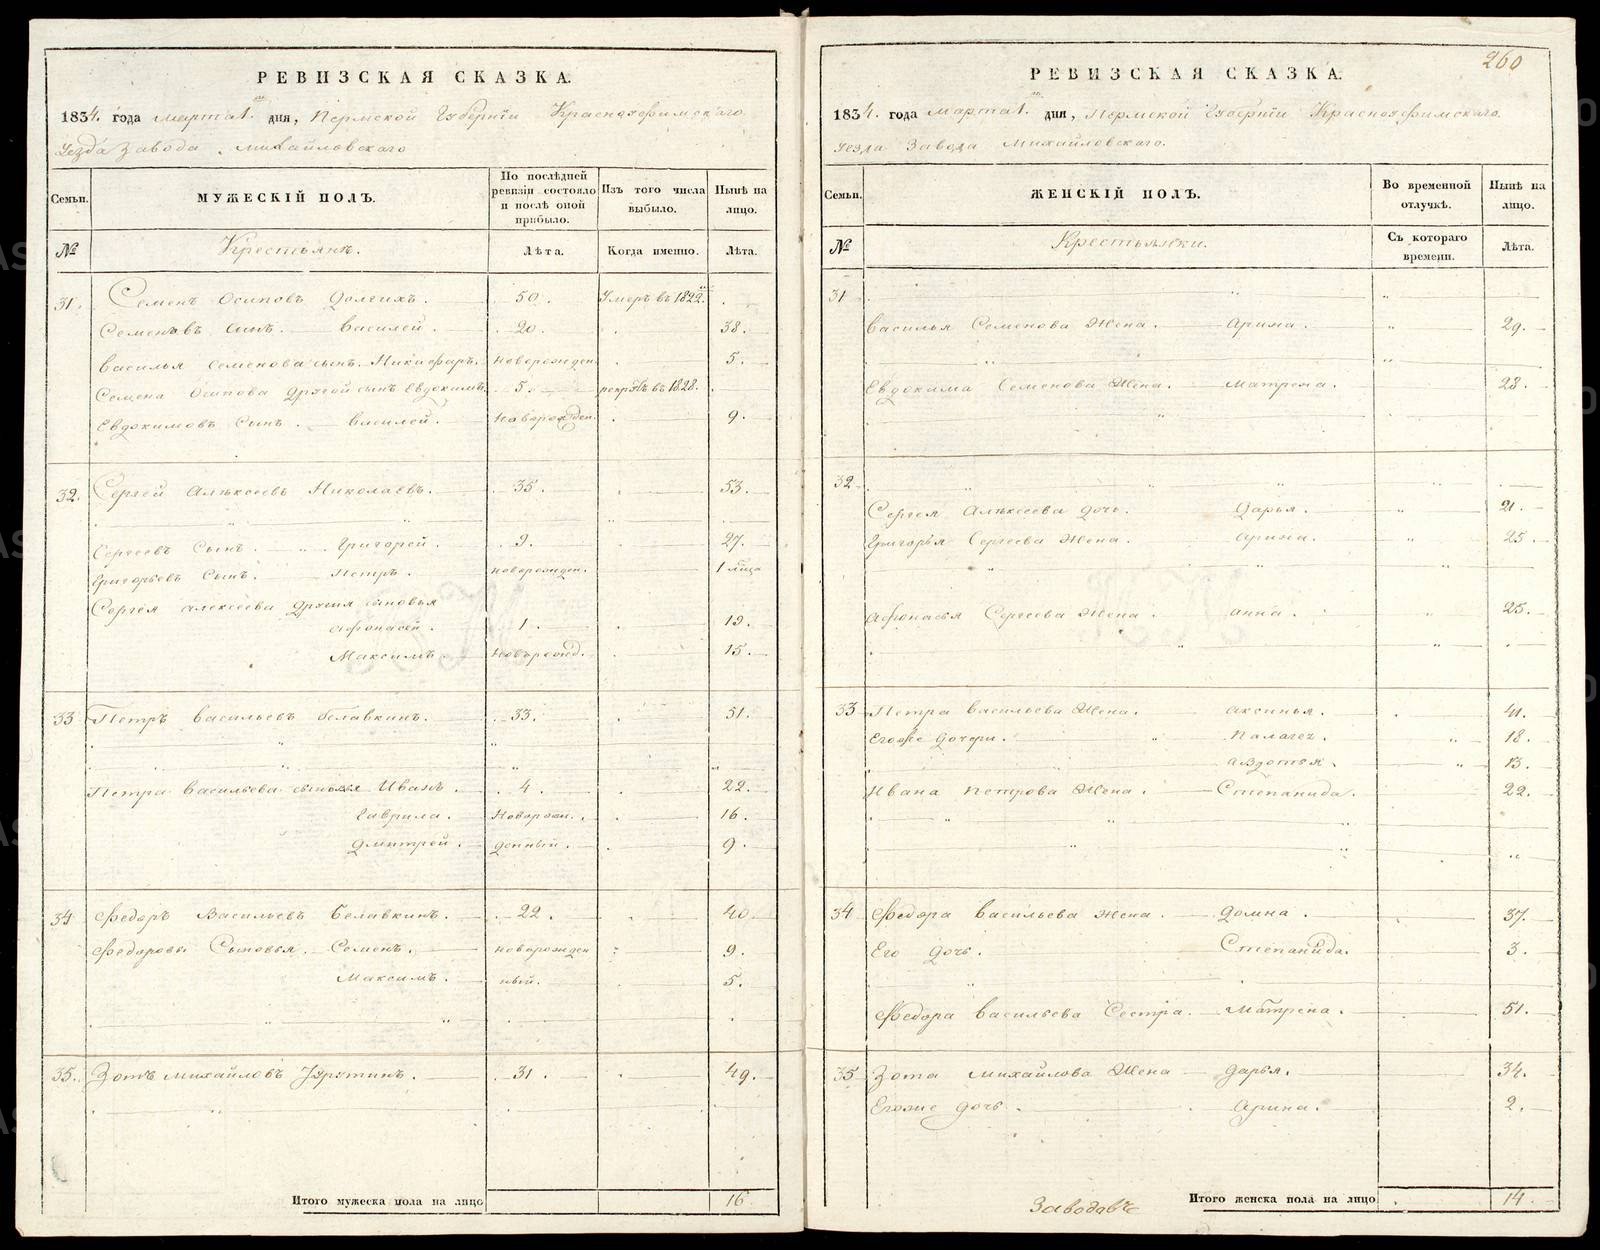 РЕВИЗСКАЯ СКАЗКА.
1834. года марта 1. дня, Пермской Губернїи Красноуфимскаго
Уезда Завода Михайловскаго
Семьи.
МУЖЕСКІЙ ПОЛЪ.
По послѣдней ревизіи состояло и послѣ оной прибыло.
Изъ того числа выбыло.
Нынѣ на лицо.
№
Крестьянъ.
Лѣта.
Когда именно.
Лѣта.
31. Семенъ Осиповъ Долгихъ. 50. Умеръ въ 1822.
Семеновъ сынъ. Василей. 20. 38.
Василья Семенова сынъ. Никафаръ. новорожден. 5.
Семена Осипова другой сынъ Евдокимъ. 5. рекрутъ въ 1828.
Евдокимовъ Сынъ. Василей. новорожден. 9.
32. Сергей Алѣксеевъ Николаевъ. 35. 53.
Сергеевъ Сынъ. Григорей. 9. 27.
Григорьевъ Сынъ. Петръ. новорожден. 1
Сергея Алексеева другия сыновья
Афонасей. 1. 19.
Максимъ. Новорожд. 15.
33 Петръ Васильевъ Белавкинъ. 33. 51.
Петра Васильева сыновья Иванъ. 4. 22.
Гаврила. Новорож. 16.
Дмитрей. денный. 9.
34 Федоръ Васильевъ Белавкинъ. 22. 40.
Федоровы Сыновья. Семенъ. новорожден 9.
Максимъ. ный. 5.
35. Зотъ Михайловъ 31. 49.
Итого мужеска пола на лицо 16.
260
РЕВИЗСКАЯ СКАЗКА.
1834. года марта 1. дня, Пермской Губернїи Красноуфимскаго.
Уезда Завода Михайловскаго.
Семьи.
ЖЕНСКІЙ ПОЛЪ.
Во временной отлучкѣ.
Нынѣ на лицо.
№
Крестьянки.
Съ котораго времени.
Лѣта.
31
Василья Семенова Жена. Арина. 29.
Евдокима Семенова Жена. Матрена. 28.
32
Сергея Алѣксеева дочь. Дарья. 21.
Григорья Сергеева Жена. Арина. 25.
Афонасья Сергеева Жена. Анна. 25.
33 Петра Васильева Жена. Аксинья. 41.
Егоже дочери. Палагея. 18.
Авдотья. 13.
Ивана Петрова Жена. Степанида. 22.
34 Федора Васильева жена. Домна. 37.
Его дочь. Степанида. 3.
Федора Васильева Сестра. Матрена. 51.
35 Зота Михайлова Жена Дарья. 34.
Егоже дочь. Арина. 2.
Итого женска пола на лицо 14.